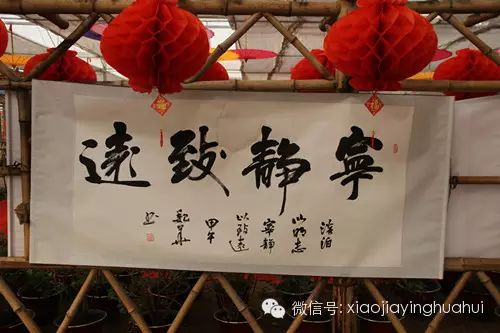 寧靜致遠
淡泊
以明志
寧靜
以致遠
甲午
書
福
微信号: xiaojiayinghuahui